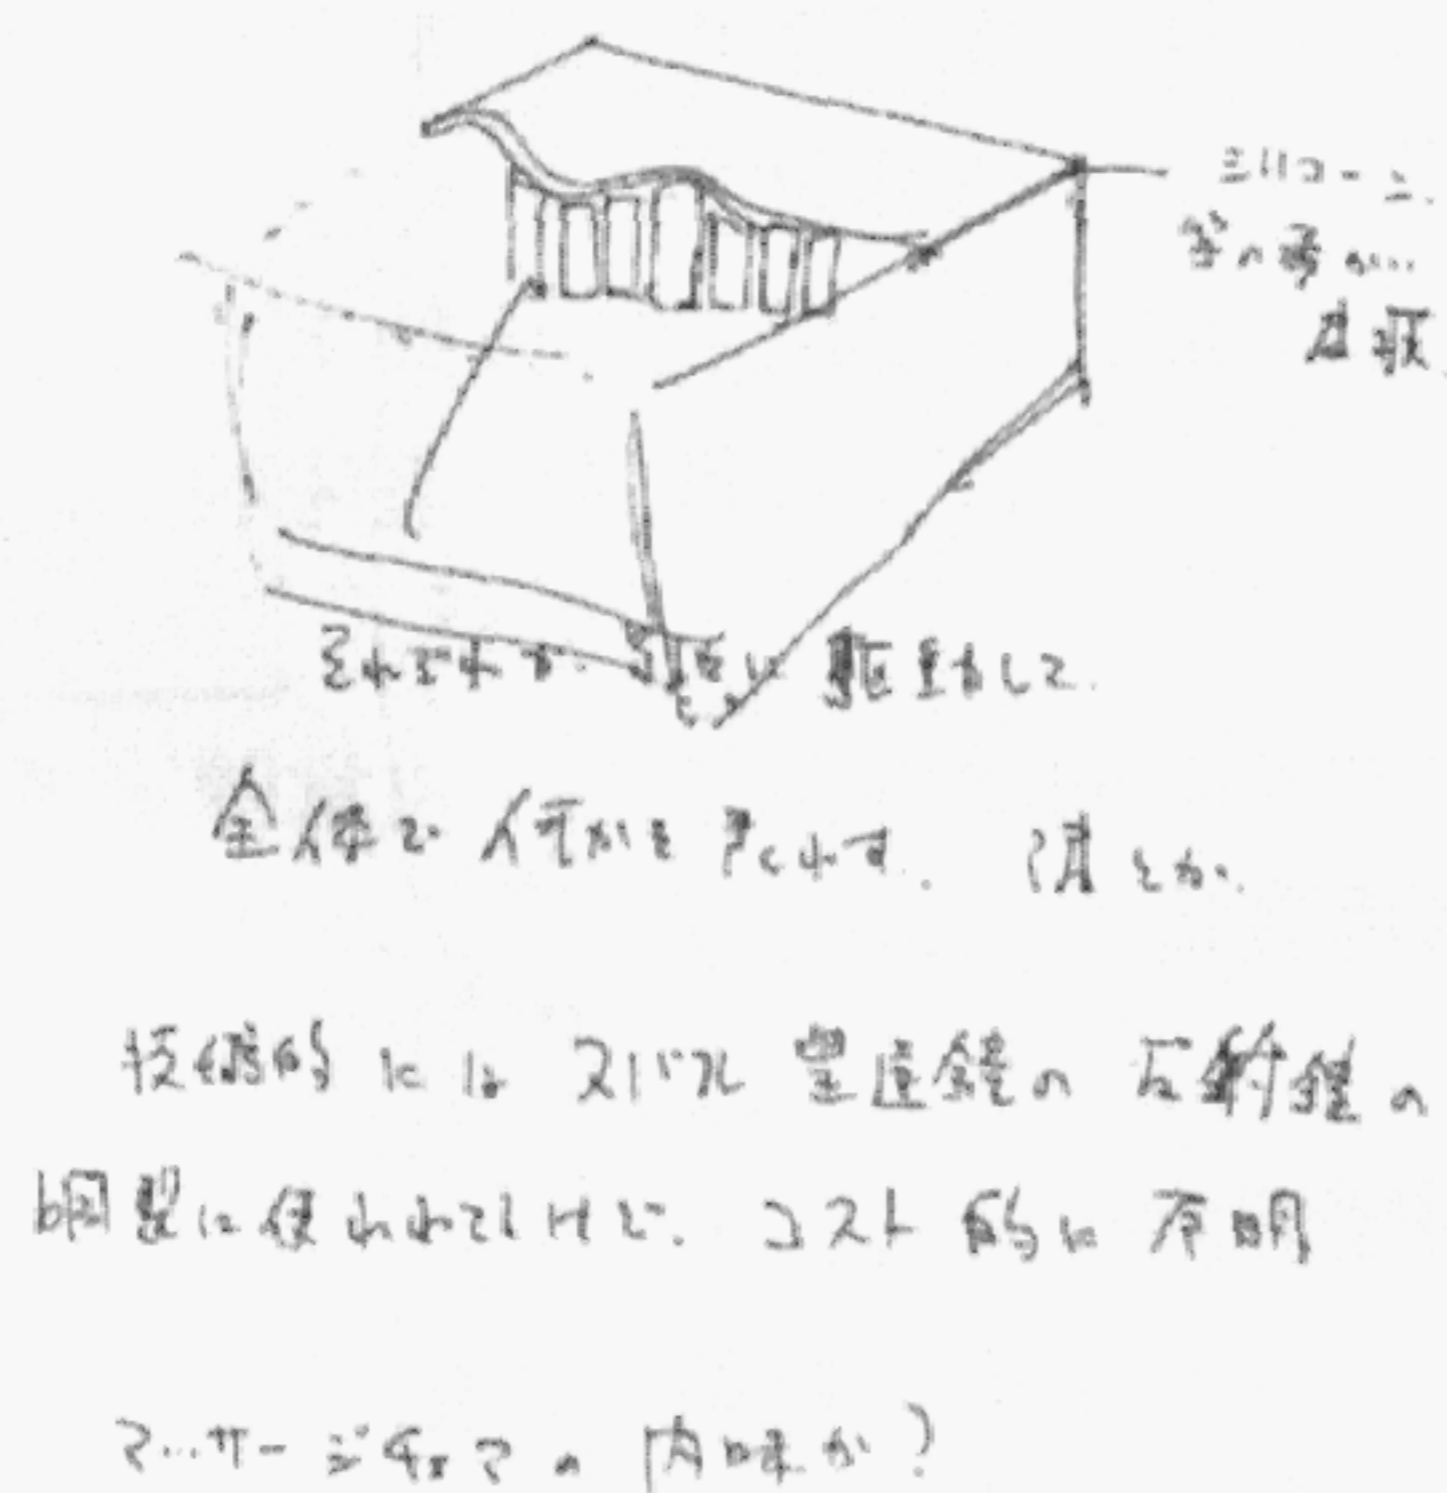 シリコーン
等の柔か
皮膜
それぞれが 別々に 駆動して
全体で 何かを 表わす. 波とか.
技術的には スバル 望遠鏡の 反射鏡の
調整に使われてるけど. コスト的に 不明
マッサージチェアの 内味か?